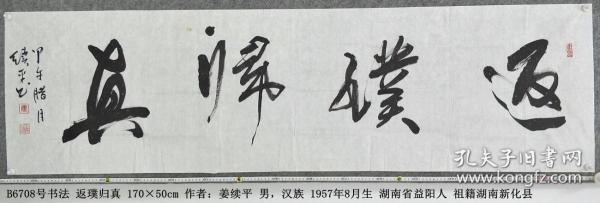 返璞歸真
甲午腊月
续平书
孔夫子旧书网
B6708号书法 返璞归真 170×50cm 作者：姜续平 男，汉族 1957年8月生 湖南省益阳人 祖籍湖南新化县